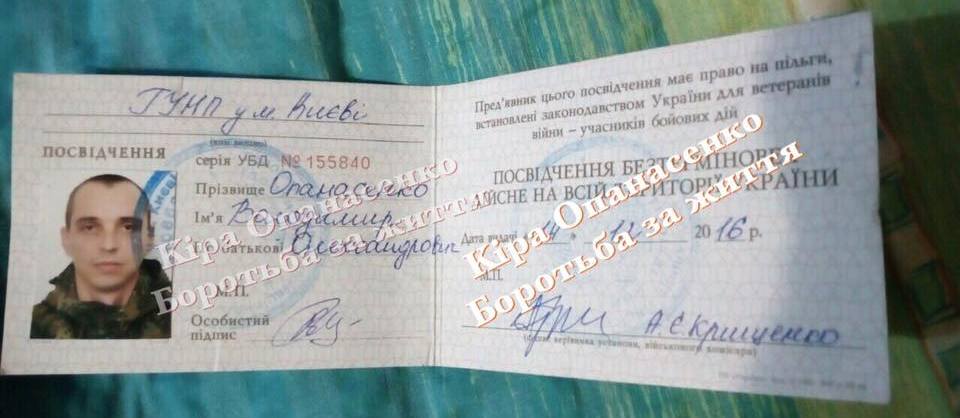 ГУНП у м. Києві
ПОСВІДЧЕННЯ
серія УБД № 155840
Прізвище Опанасенко
Ім'я Володимир
По батькові Олександрович
М.П.
Особистий
підпис
Пред'явник цього посвідчення має право на пільги,
встановлені законодавством України для ветеранів
війни – учасників бойових дій
ПОСВІДЧЕННЯ БЕЗТЕРМІНОВЕ
ДІЙСНЕ НА ВСІЙ ТЕРИТОРІЇ УКРАЇНИ
Дата видачі 12 2016 р.
М.П.
А.Є. Крищенко
Кіра Опанасенко
Боротьба за життя
Кіра Опанасенко
Боротьба за життя